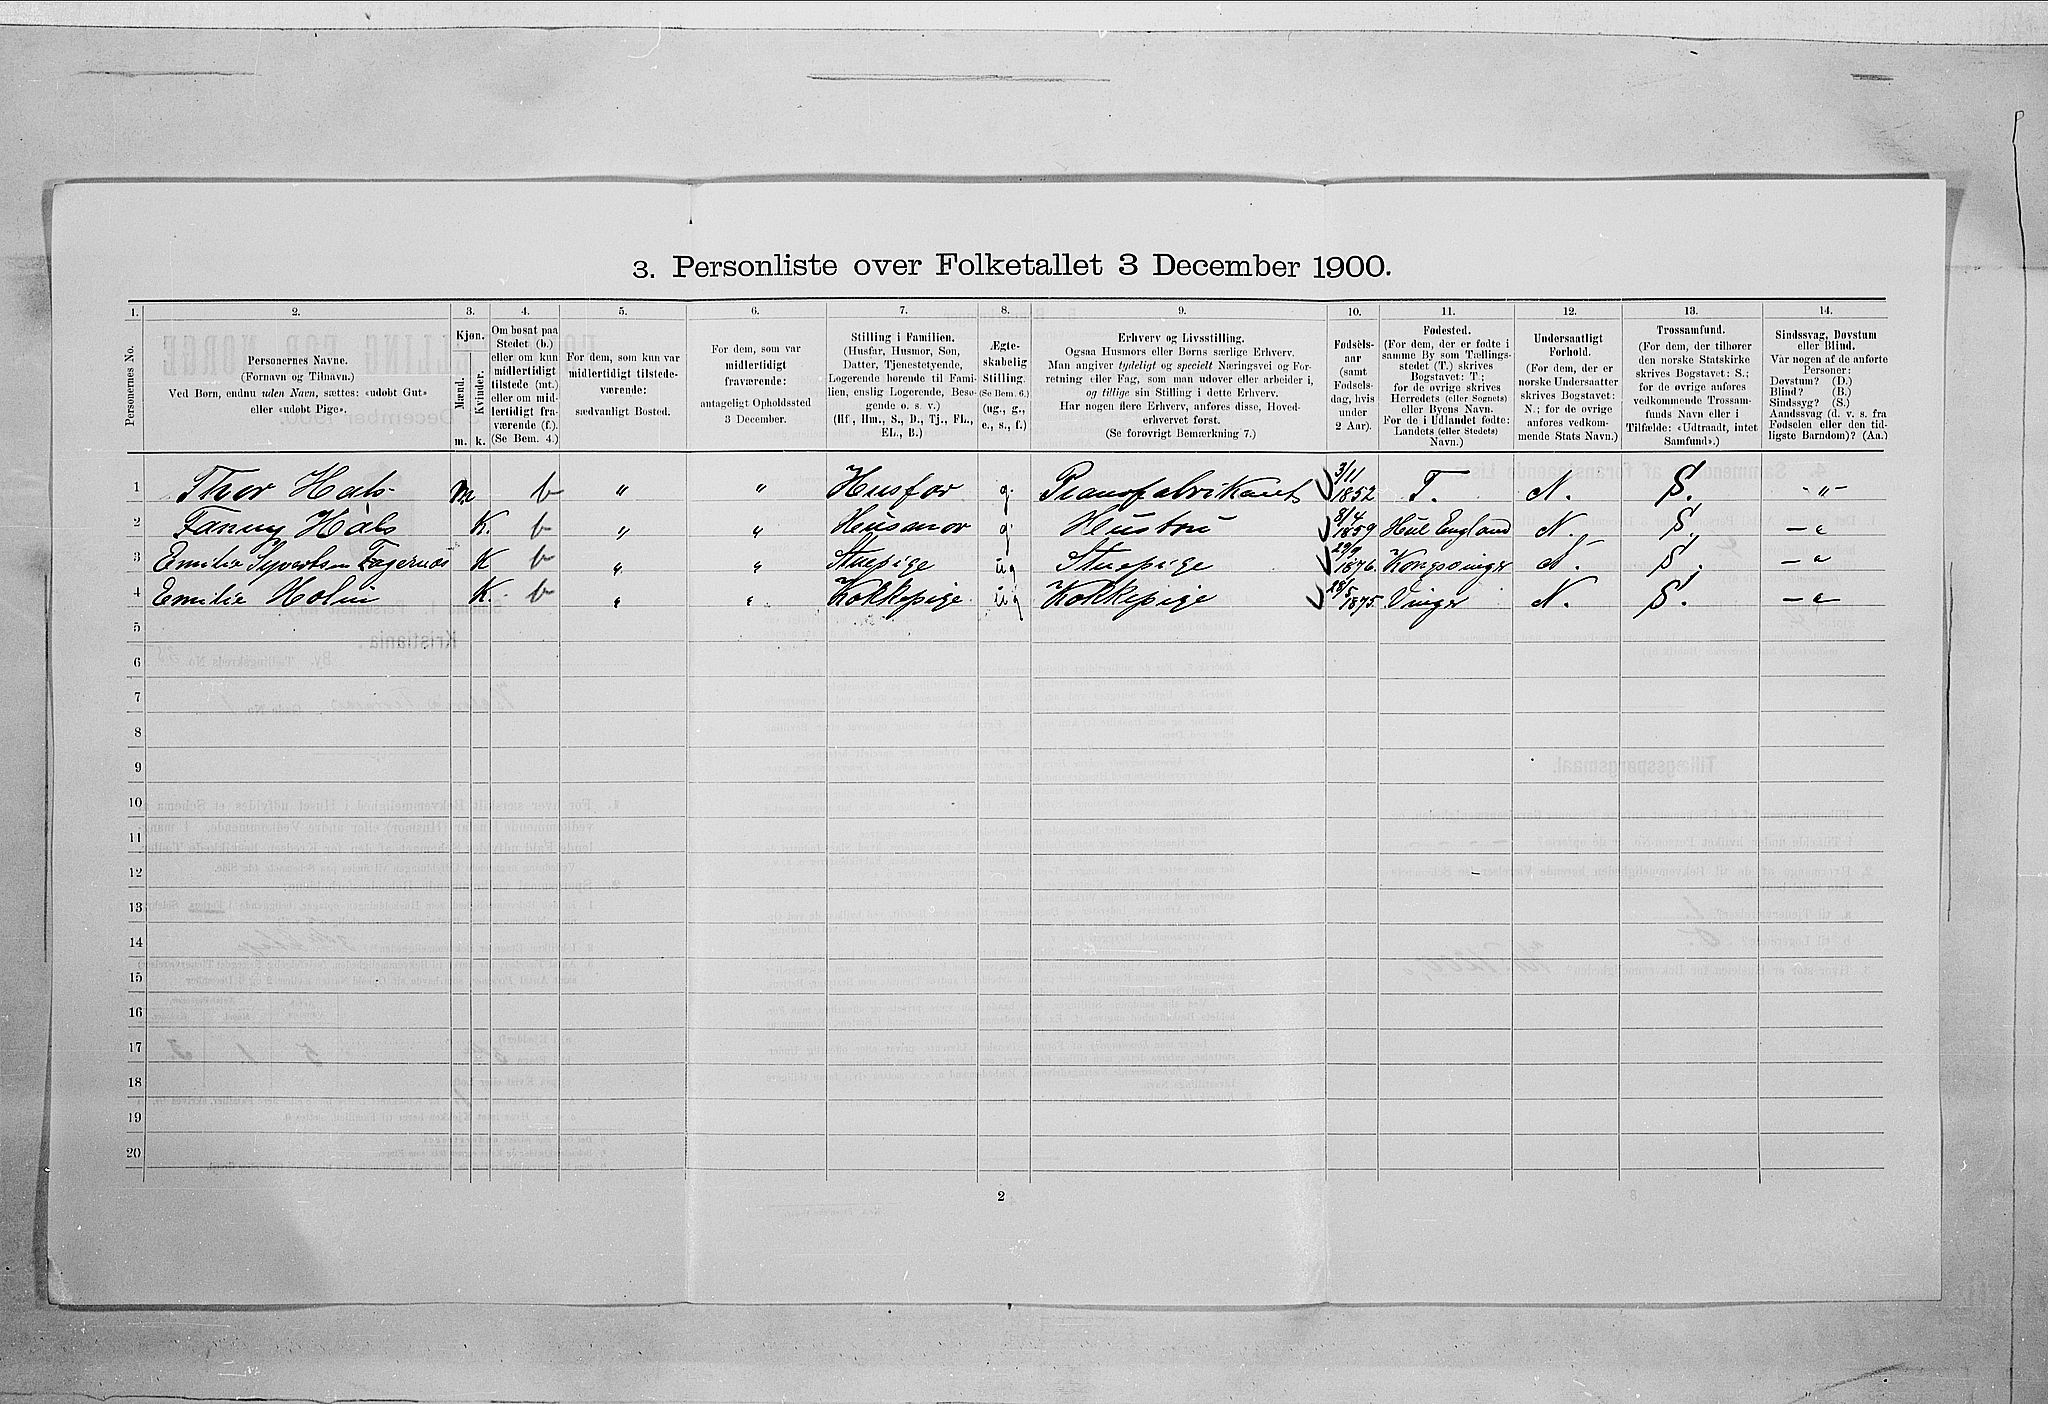 3. Personliste over Folketallet 3 December 1900.
1. 2. 3. 4. 5. 6. 7. 8. 9. 10. 11. 12. 13. 14.
Personernes No.
Personernes Navne.
(Fornavn og Tilnavn.)
Ved Børn, endnu uden Navn, sættes: «udøbt Gut»
eller «udøbt Pige».
Kjøn.
Mænd.
Kvinder.
m. k.
Om bosat paa
Stedet (b.)
eller om kun
midlertidigt
tilstede (mt.)
eller om mid-
lertidigt fra-
værende (f.).
(Se Bem. 4.)
For dem, som kun var
midlertidigt tilstede-
værende:
sædvanligt Bosted.
For dem, som var
midlertidigt
fraværende:
antageligt Opholdssted
3 December.
Stilling i Familien.
(Husfar, Husmor, Søn,
Datter, Tjenestetyende,
Logerende hørende til Fami-
lien, enslig Logerende, Besø-
gende o. s. v.)
(Hf, Hm., S., D., Tj., FL.,
EL., B.)
Ægte-
skabelig
Stilling.
(Se Bem. 6.)
(ug., g.,
e., s., f.)
Erhverv og Livsstilling.
Ogsaa Husmors eller Børns særlige Erhverv.
Man angiver tydeligt og specielt Næringsvei og For-
retning eller Fag, som man udøver eller arbeider i,
og tillige sin Stilling i dette Erhverv.
Har nogen flere Erhverv, anføres disse, Hoved-
erhvervet først.
(Se forøvrigt Bemærkning 7.)
Fødsels-
aar
(samt
Fødsels-
dag, hvis
under
2 Aar).
Fødested.
(For dem, der er fødte i
samme By som Tællings-
stedet (T.) skrives
Bogstavet: T;
for de øvrige skrives
Herredets (eller Sognets)
eller Byens Navn.
For de i Udlandet fødte:
Landets (eller Stedets)
Navn.)
Undersaatligt
Forhold.
(For dem, der er
norske Undersaatter
skrives Bogstavet:
N.; for de øvrige
anføres vedkom-
mende Stats Navn.)
Trossamfund.
(For dem, der tilhører
den norske Statskirke
skrives Bogstavet: S.;
for de øvrige anføres
vedkommende Trossam-
funds Navn eller i
Tilfælde: «Udtraadt, intet
Samfund».)
Sindssvag, Døvstum
eller Blind.
Var nogen af de anførte
Personer:
Døvstum? (D.)
Blind? (B.)
Sindssyg? (S.)
Aandssvag (d. v. s. fra
Fødselen eller den tid-
ligste Barndom)? (Aa.)
1 Thor Hals m b " " Husfar g. Pianofabrikant 3/11 1852 T. N. S. -"-
2 Fanny Hals K. b " " Husmor g Hustru 8/4 1859 Hul England N. S. -"
3 Emilie Syvertsen Fagernæs K b " " Stuepige ug Stuepige 29/9 1876. Kongsvinger N. S. -"
4 Emilie Holm K. b " " Kokkepige ug Kokkepige 28/5 1875. Vinger N. S. -"
5
6
7
8
9
10
11
12
13
14
15
16
17
18
19
20
2